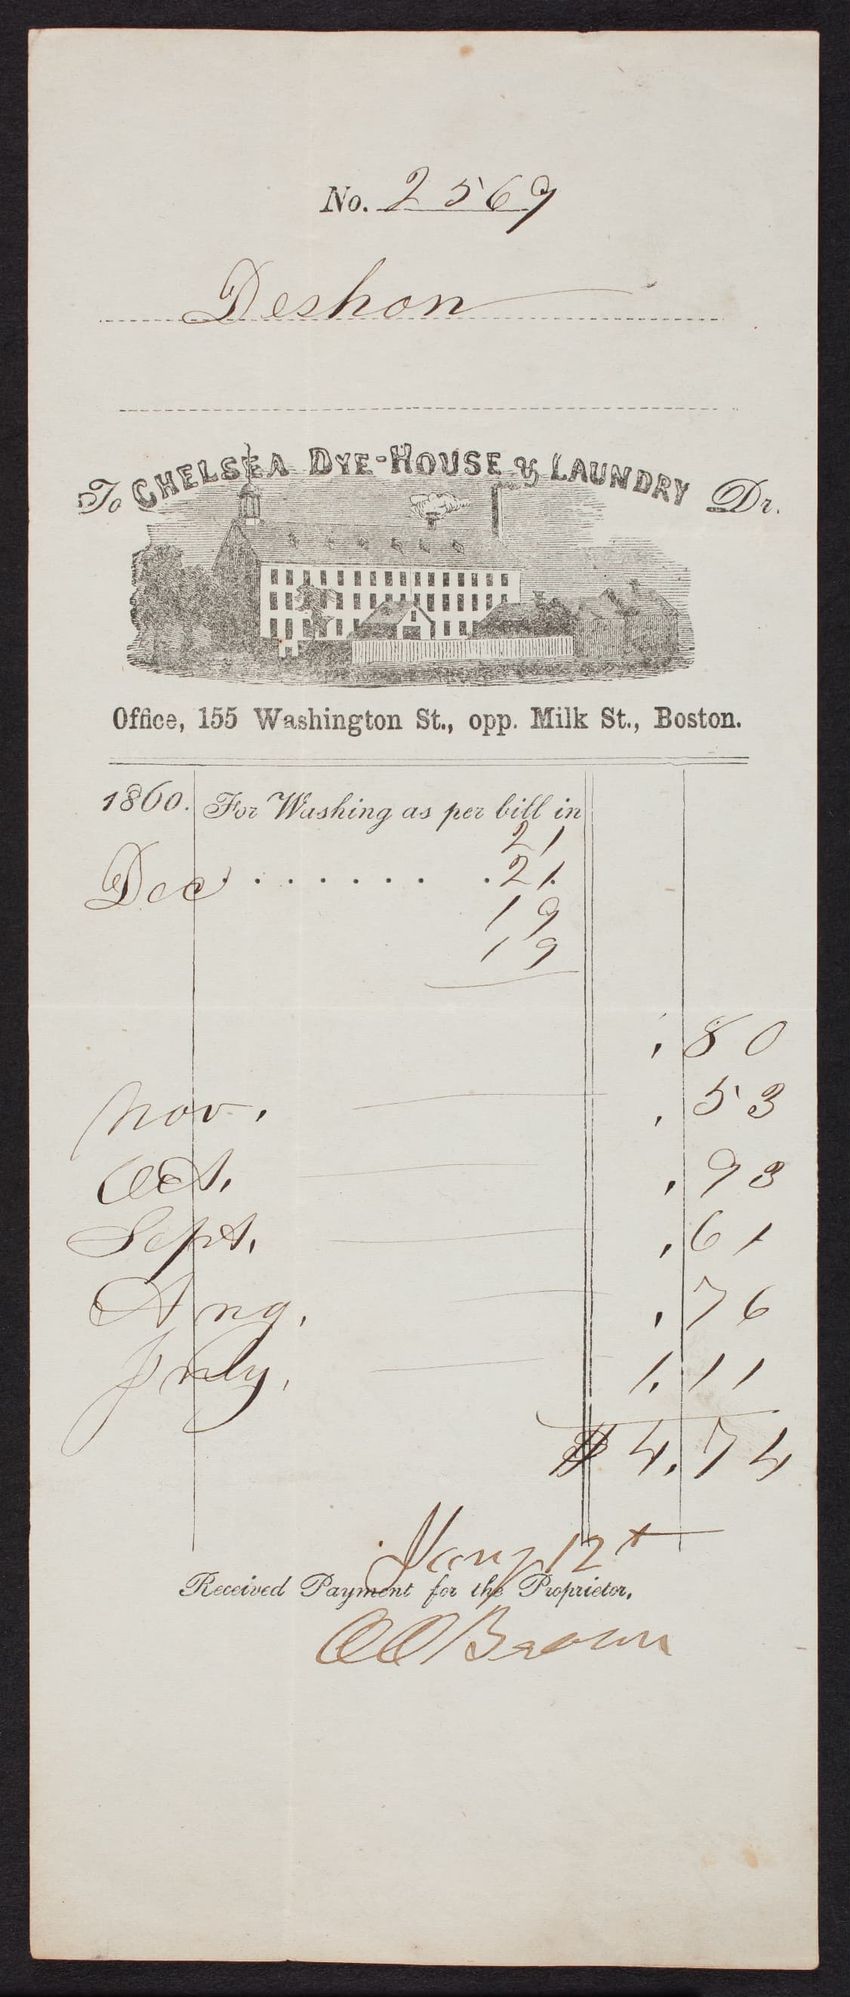 No. 2569
Deshon
To CHELSEA DYE-HOUSE & LAUNDRY Dr.
Office, 155 Washington St., opp. Milk St., Boston.
1860. For Washing as per bill in
21
Dec . . . . . . . . 21
19
19
.80
Nov. .53
Oct. .93
Sept. .61
Aug. .76
July. 1.11
$4.74
Jany 12t
Received Payment for the Proprietor,
Brown